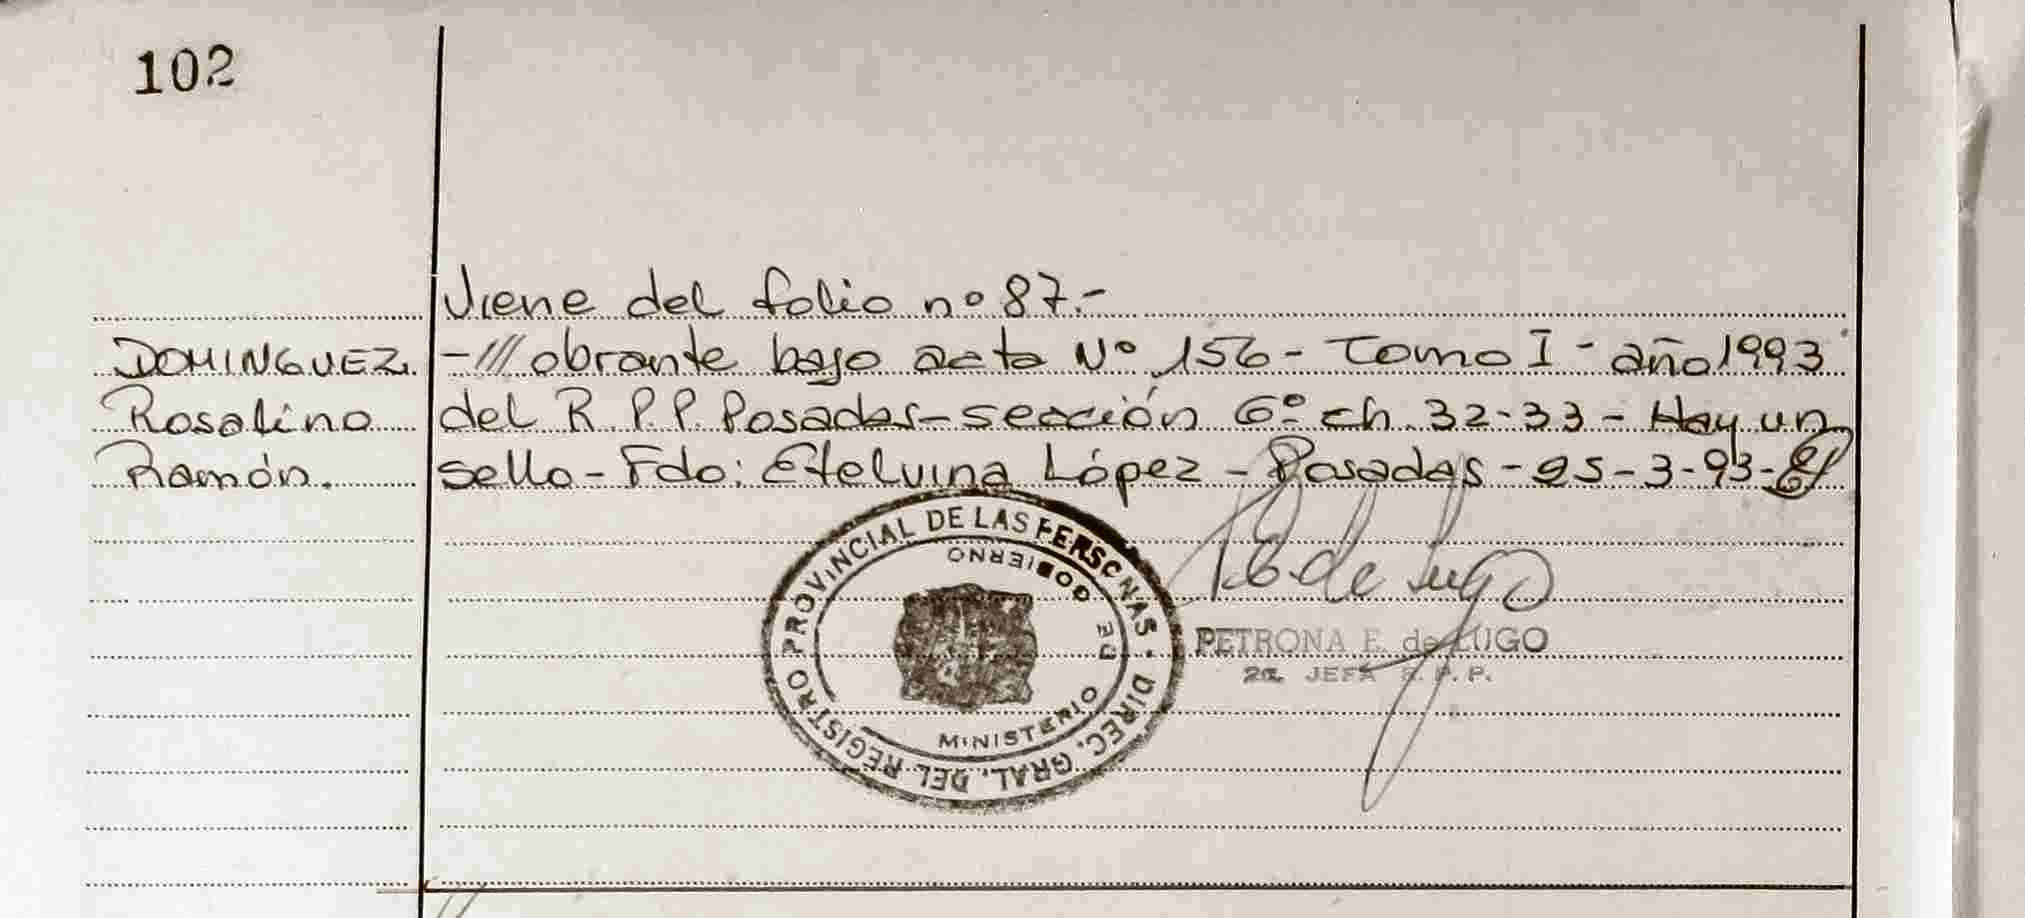 102
Viene del folio nº 87.-
DOMINGUEZ.
-/// obrante bajo acta Nº 156 - Tomo I - año 1993
Rosalino
del R.P.P. Posadas - sección 6º ch. 32-33 - Hay un
Ramón.
sello - Fdo: Etelvina López - Posadas - 25-3-93-
DIREC. GRAL. DEL REGISTRO PROVINCIAL DE LAS PERSONAS
MINISTERIO DE GOBIERNO
de Lugo
PETRONA E. de LUGO
2a. JEFA R.P.P.